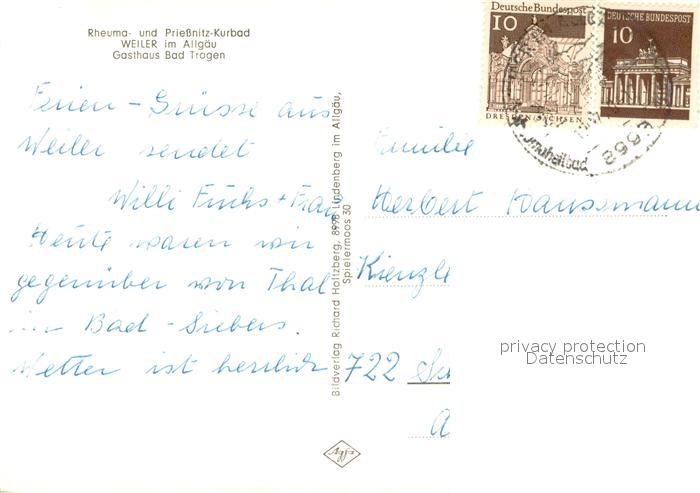 Rheuma- und Prießnitz-Kurbad
WEILER im Allgäu
Gasthaus Bad Trogen
Ferien - Grüsse aus
Weiler sendet
Willi Fuchs + Frau
Heute waren wir
gegenüber von Thal
in Bad - Siebers.
Wetter ist herrlich
Bildverlag Richard Holtzberg, 8998 Lindenberg im Allgäu,
Spielermoos 30
Agfa
Deutsche Bundespost
10
DRESDEN/SACHSEN
DEUTSCHE BUNDESPOST
10
Familie
Herbert Haussmann
Kienzle
722
A
privacy protection
Datenschutz